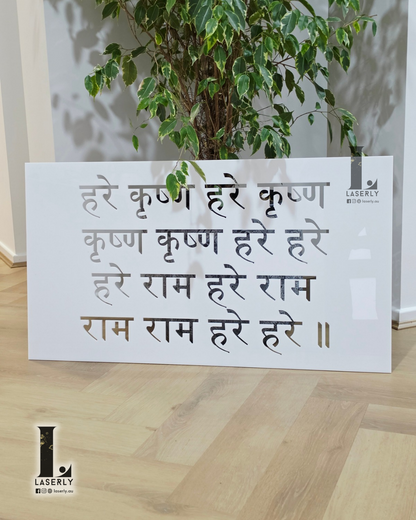 हरे कृष्ण हरे कृष्ण
कृष्ण कृष्ण हरे हरे
हरे राम हरे राम
राम राम हरे हरे ॥
L
LASERLY
L
LASERLY
laserly.eu